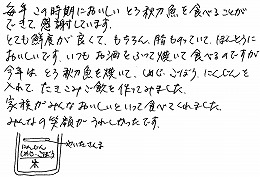 毎年この時期においしいとろ秋刀魚を食べることが
できて感謝しています。
とても鮮度が良くて、もちろん、脂ものっていて、ほんとうに
おいしいです。いつもお酒をふって焼いて食べるのですが
今年は、とろ秋刀魚を焼いて、しめじ・ごぼう、にんじんを
入れて、たきこみご飯を作ってみました。
家族がみんなおいしいといって食べてくれました。
みんなの笑顔がうれしかったです。
やいたさんま
にんじん
しめじ・ごぼう
米